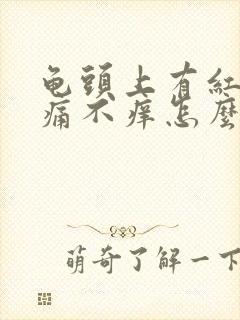 龟頭上有紅
痛不痒怎麽
萌奇了解一下